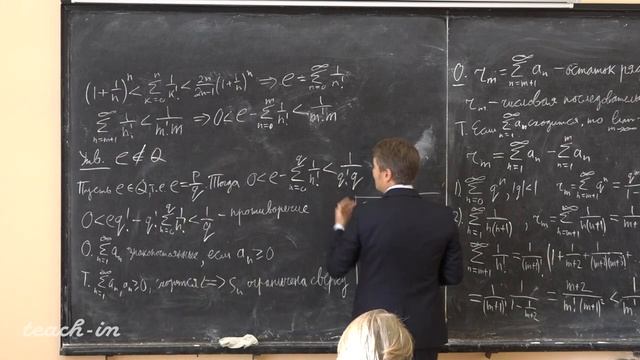 (1+1/n)^n < Σ_{k=0}^{n} 1/k! < 2n/(2n-1) (1+1/n)^n ⇒ e = Σ_{n=0}^{∞} 1/n!
Σ_{n=m+1}^{∞} 1/n! < 1/(m!m) ⇒ 0 < e - Σ_{n=0}^{m} 1/n! < 1/(m!m)
Утв. e ∉ Q
Пусть e ∈ Q, т.е. e = p/q. Тогда 0 < e - Σ_{n=0}^{q} 1/n! < 1/(q!q)
0 < eq! - q! Σ_{n=0}^{q} 1/n! < 1/q - противоречие
О. Σ_{n=1}^{∞} a_n, если a_n ≥ 0
Т. Σ_{n=1}^{∞} a_n, a_n ≥ 0, сходится ⇔ S_n ограничена сверху
О. r_m = Σ_{n=m+1}^{∞} a_n - остаток ря
r_m - числовая последователь
Т. Если Σ_{n=1}^{∞} a_n сходится, то lim
r_m = Σ_{n=1}^{∞} a_n - Σ_{n=1}^{m} a_n
1) Σ q^n, |q|<1 r_m = Σ_{n=m+1}^{∞} q^n =
2) Σ_{n=1}^{∞} 1/(n(n+1)), r_m = Σ_{n=m+1}^{∞} 1/(n(n+1))
Σ_{n=m+1}^{∞} 1/n! = 1/(m+1)! (1 + 1/(m+2) +
= 1/(m+1)! = (m+2)/(m!(m+1)²) <
teach-in